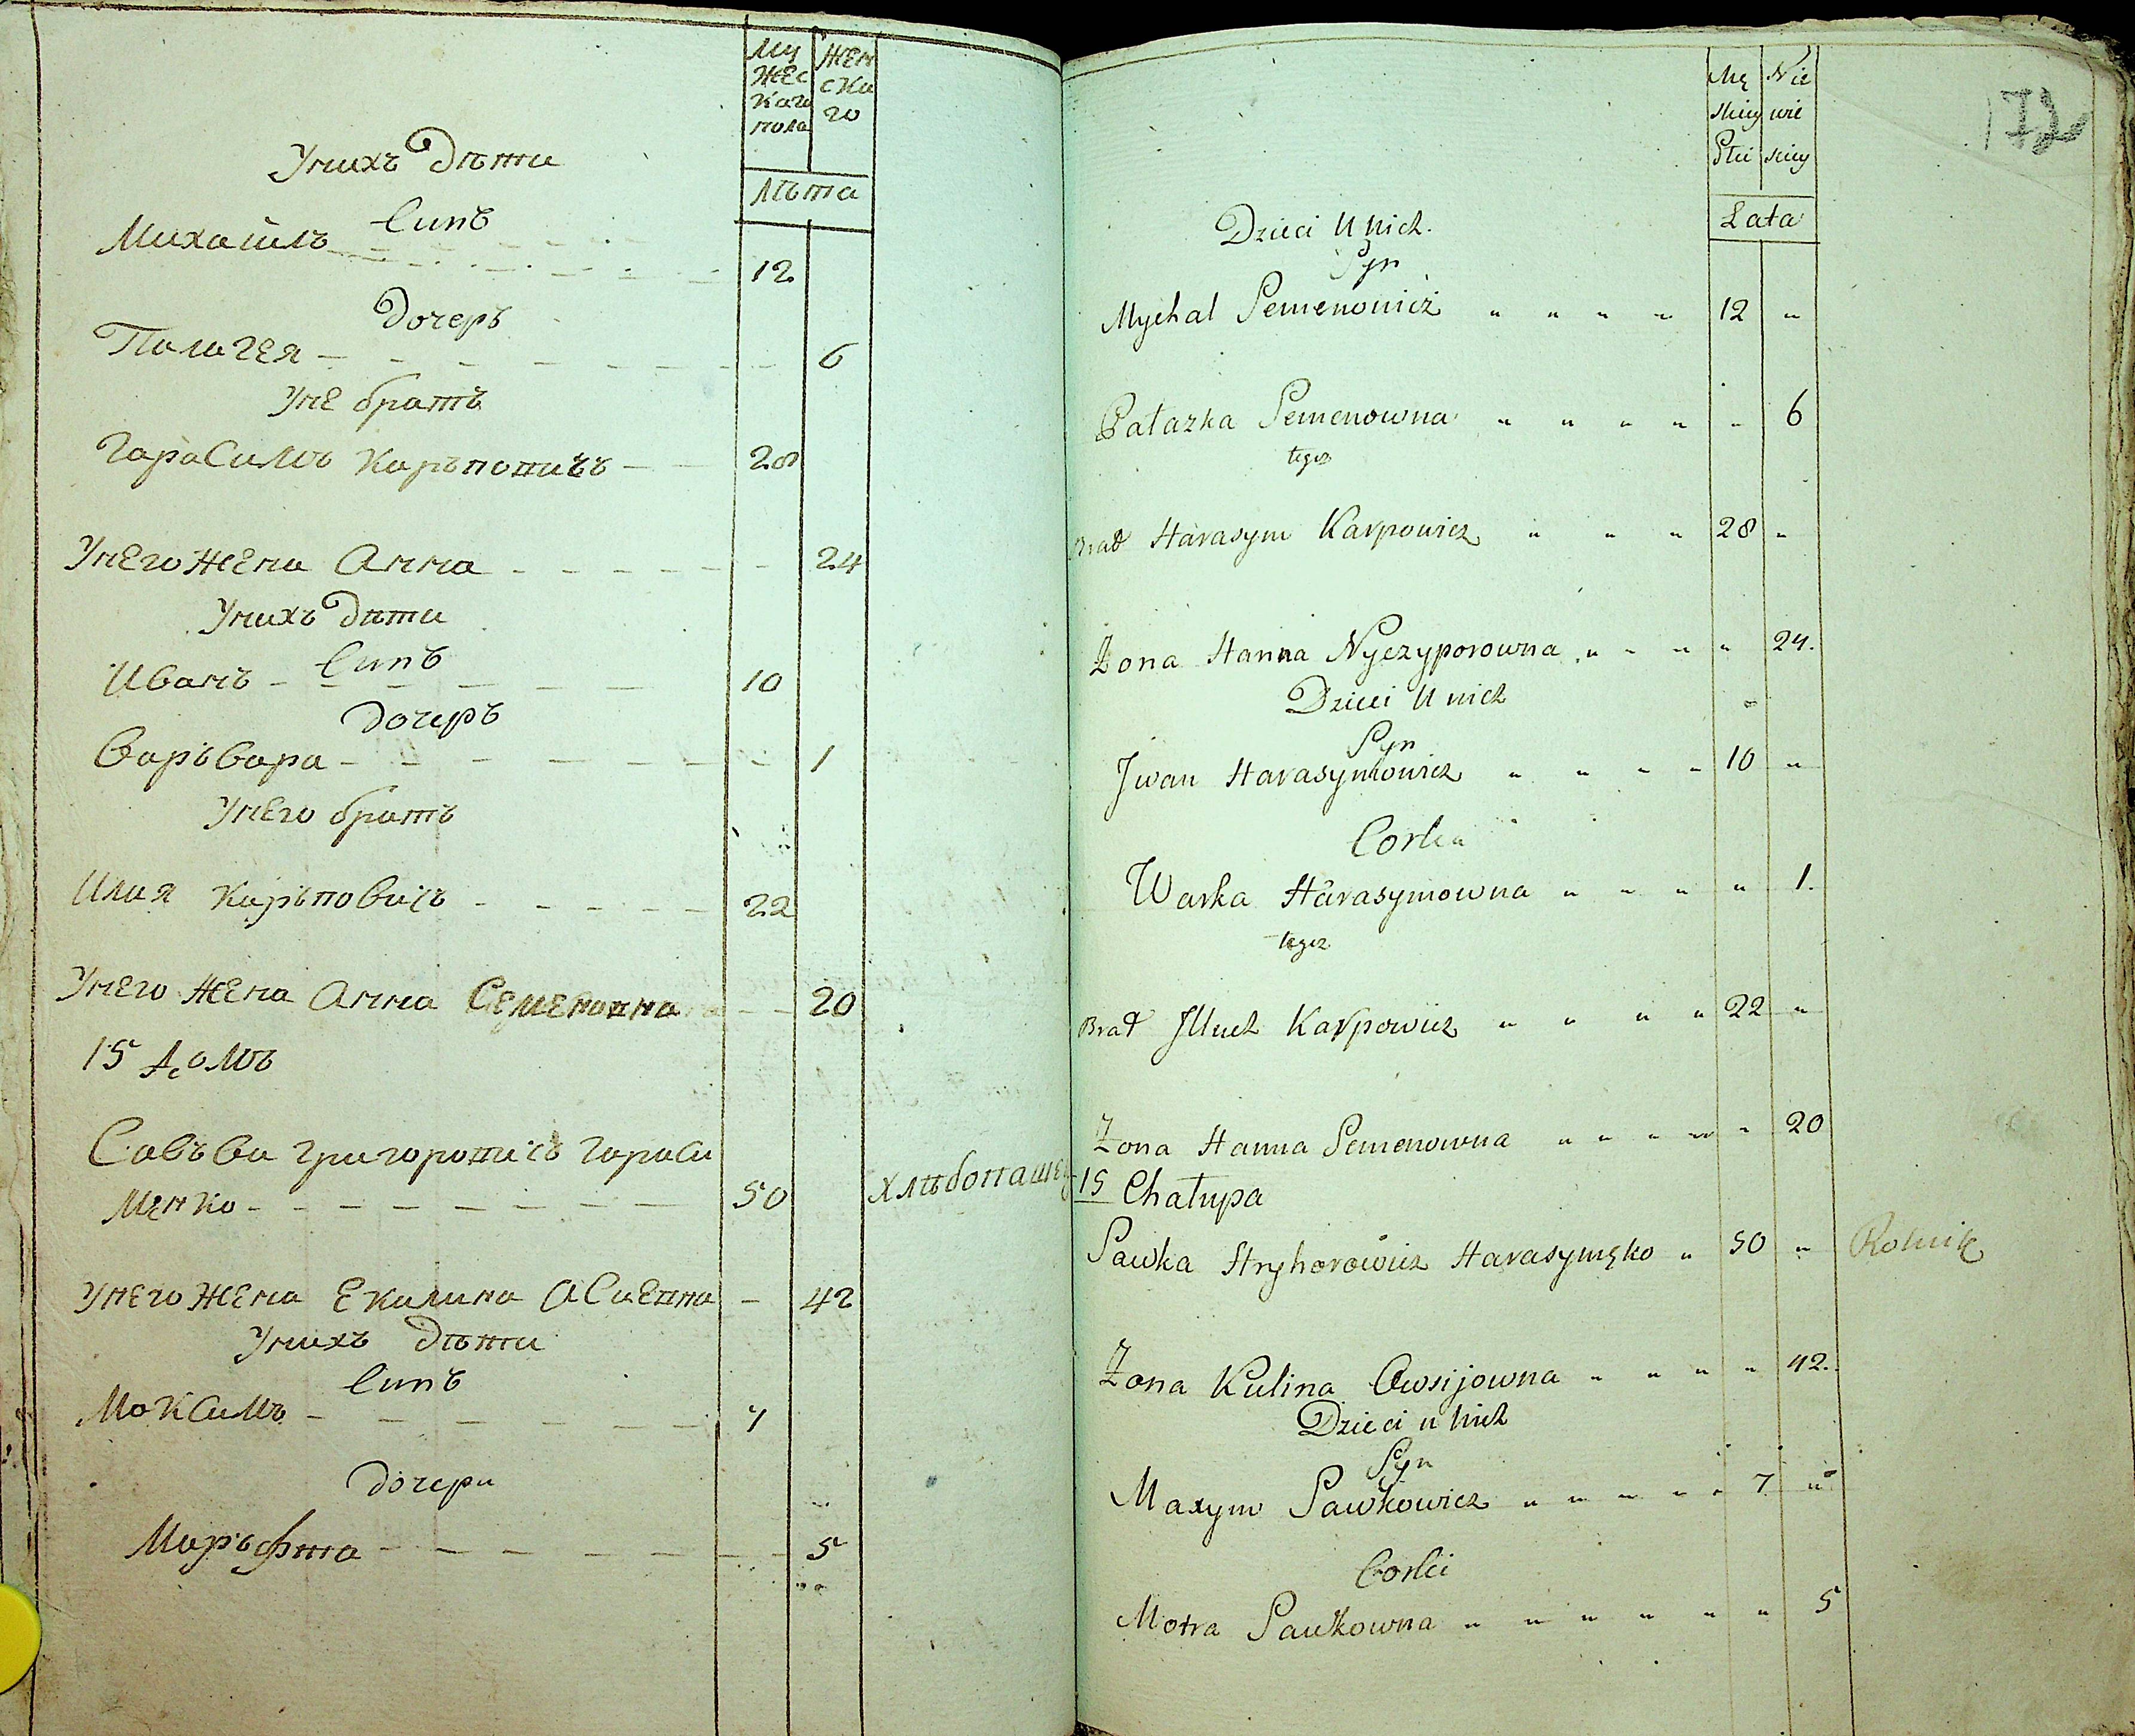 Му
жес
каго
пола
Жен
ска
го
Лѣта
Унихъ дѣти
Синъ
Михаилъ 12
Дочеръ
Палагея 6
Уне братъ
Гарасимъ Каръповичъ 28
Унего жена Анна 24
Унихъ дѣти
Синъ
Иванъ 10
Дочеръ
Варъвара 1
Унего братъ
Илия Каръповичъ 22
Унего жена Анна Семеновна 20
15 Домъ
Савъва Григоровичъ Гараси
Менко 50 Хлѣбопашец
Унего жена Екилина Асиевна 42
Унихъ дѣти
Синъ
Моксимъ 7
Дочери
Маръфта 5
172
Mę
skiey
Płci
Nie
wie
sciey
Lata
Dzieci U nich.
Syn
Mychal Semenowicz " " " " 12 "
Pałazka Semenowna " " " " " 6
tegoz
Brat Harasym Karpowicz " " " 28 "
Zona Hanna Nyczyporowna " " " " 24.
Dzieci U nich
Syn
Jwan Harasymowicz " " " " 10 "
Corka
Warka Harasymowna " " " " 1.
tegoz
Brat Jlluch Karpowicz " " " " 22 "
Zona Hanna Semenowna " " " " " 20
15 Chałupa
Sawka Hryhorowicz Harasymęko " 50 " Rolnik
Zona Kulina Owsijowna " " " " 42.
Dzieci u nich
Syn
Maxym Sawkowicz " " " " " 7 "
Corki
Motra Sawkowna " " " " " " 5